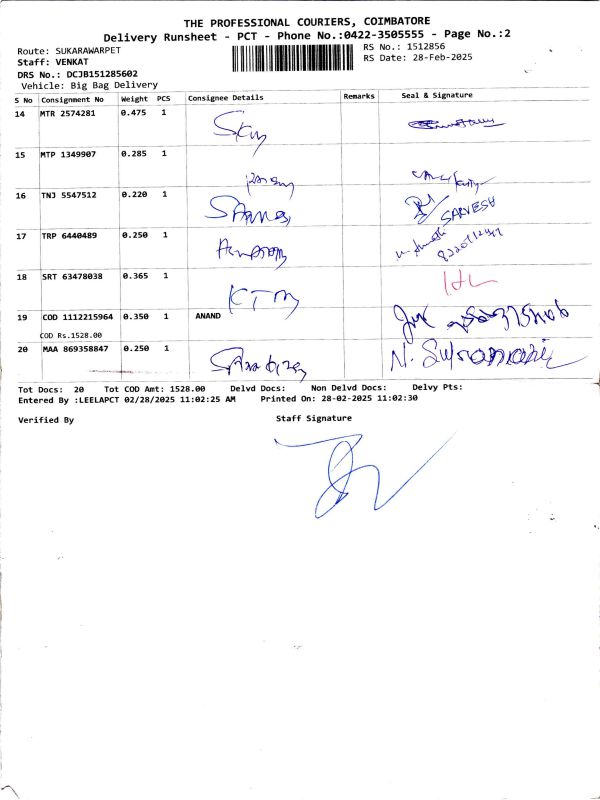 THE PROFESSIONAL COURIERS, COIMBATORE
Delivery Runsheet - PCT - Phone No.:0422-3505555 - Page No.:2
Route: SUKARAWARPET
RS No.: 1512856
Staff: VENKAT
RS Date: 28-Feb-2025
DRS No.: DCJB151285602
Vehicle: Big Bag Delivery
S No Consignment No Weight PCS Consignee Details Remarks Seal & Signature
14 MTR 2574281 0.475 1
15 MTP 1349907 0.285 1
16 TNJ 5547512 0.220 1 SARVESH
17 TRP 6440489 0.250 1
18 SRT 63478038 0.365 1 KTM
19 COD 1112215964 0.350 1 ANAND
COD Rs.1528.00
20 MAA 869358847 0.250 1
Tot Docs: 20 Tot COD Amt: 1528.00 Delvd Docs: Non Delvd Docs: Delvy Pts:
Entered By :LEELAPCT 02/28/2025 11:02:25 AM Printed On: 28-02-2025 11:02:30
Verified By Staff Signature